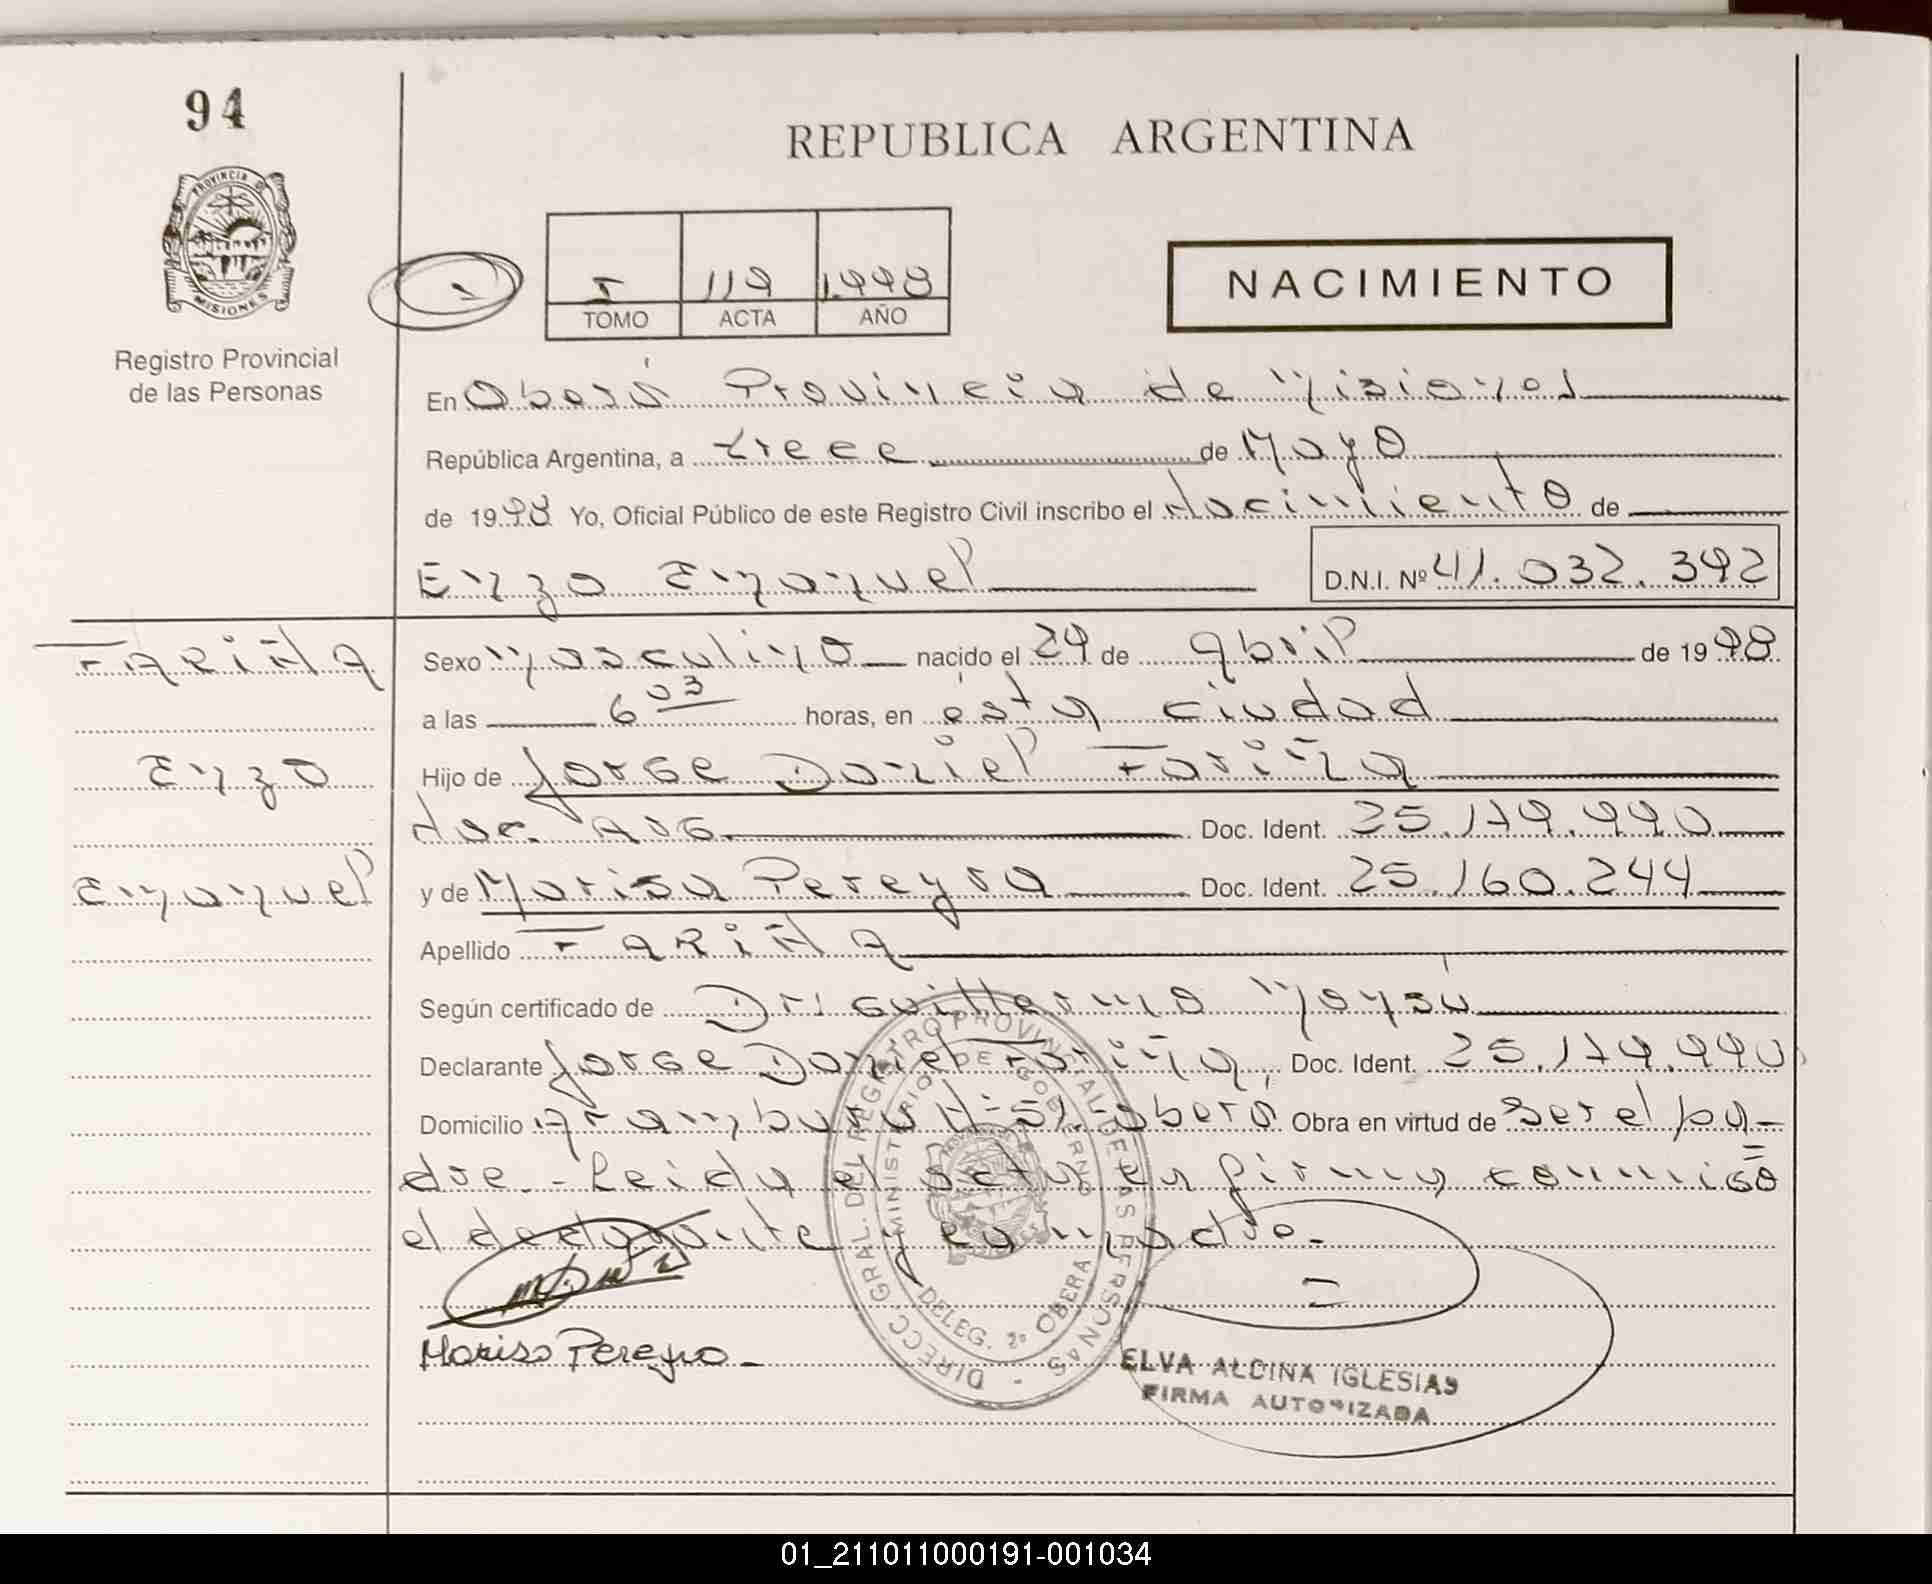 94
PROVINCIA DE
MISIONES
Registro Provincial
de las Personas
REPUBLICA ARGENTINA
I 119 1.998
TOMO ACTA AÑO
NACIMIENTO
En Oberá Provincia de Misiones
República Argentina, a trece de Mayo
de 1998 Yo, Oficial Público de este Registro Civil inscribo el Nacimiento de
Enzo Emanuel D.N.I. Nº 41.032.392
FARIÑA Sexo Masculino nacido el 29 de Abril de 1998
a las 6 03 horas, en ésta ciudad
Enzo Hijo de Jorge Daniel Fariña
Nac. Arg. Doc. Ident. 25.179.990
Emanuel y de Marisa Pereyra Doc. Ident. 25.160.244
Apellido FARIÑA
Según certificado de Dr. Guillermo
Declarante Jorge Daniel Fariña, Doc. Ident. 25.179.990
Domicilio Oberá Obra en virtud de ser el pa-
dre.- Leida el acta la firma conmigo
el declarante y la madre.-
Marisa Pereyra
DIRECC. GRAL. DEL REGISTRO PROVINCIAL DE LAS PERSONAS
MINISTERIO DE GOBIERNO
DELEG. 2º OBERA
ELVA ALDINA IGLESIAS
FIRMA AUTORIZADA
01_211011000191-001034